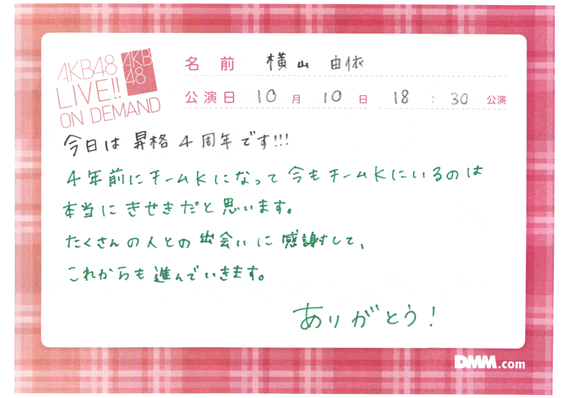 AKB48
LIVE!!
ON DEMAND
AKB
48
名前 横山 由依
公演日 10月10日 18:30公演
今日は昇格4周年です!!!
4年前にチームKになって今もチームKにいるのは
本当にきせきだと思います。
たくさんの人との出会いに感謝して、
これからも進んでいきます。
ありがとう!
DMM.com